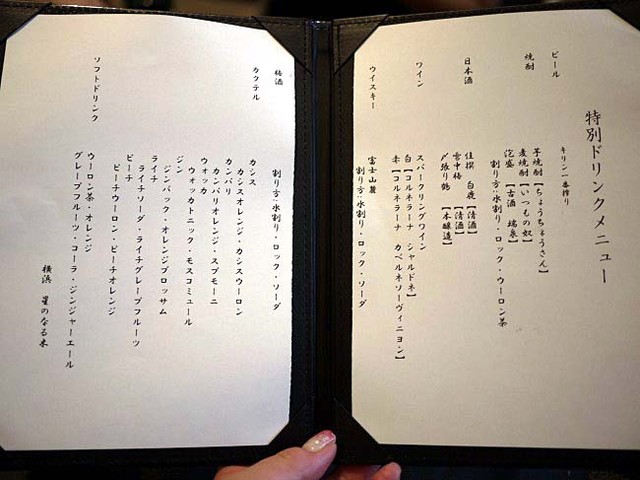 特別ドリンクメニュー
ビール
キリン一番搾り
焼酎
芋焼酎【ちょうちょうさん】
麦焼酎【いつもの奴】
泡盛【古酒 瑞泉】
割り方:水割り・ロック・ウーロン茶
日本酒
佳撰 白鹿【清酒】
雪中梅【清酒】
〆張り鶴【本醸造】
ワイン
スパークリングワイン
白【コルネラーナ シャルドネ】
赤【コルネラーナ カベルネソーヴィニヨン】
ウイスキー
富士山麓
割り方:水割り・ロック・ソーダ
梅酒
割り方:水割り・ロック・ソーダ
カクテル
カシス
カシスオレンジ・カシスウーロン
カンパリ
カンパリオレンジ・スプモーニ
ウォッカ
ウォッカトニック・モスコミュール
ジン
ジンバック・オレンジブロッサム
ライチ
ライチソーダ・ライチグレープフルーツ
ピーチ
ピーチウーロン・ピーチオレンジ
ソフトドリンク
ウーロン茶・オレンジ
グレープフルーツ・コーラ・ジンジャーエール
横浜 星のなる木